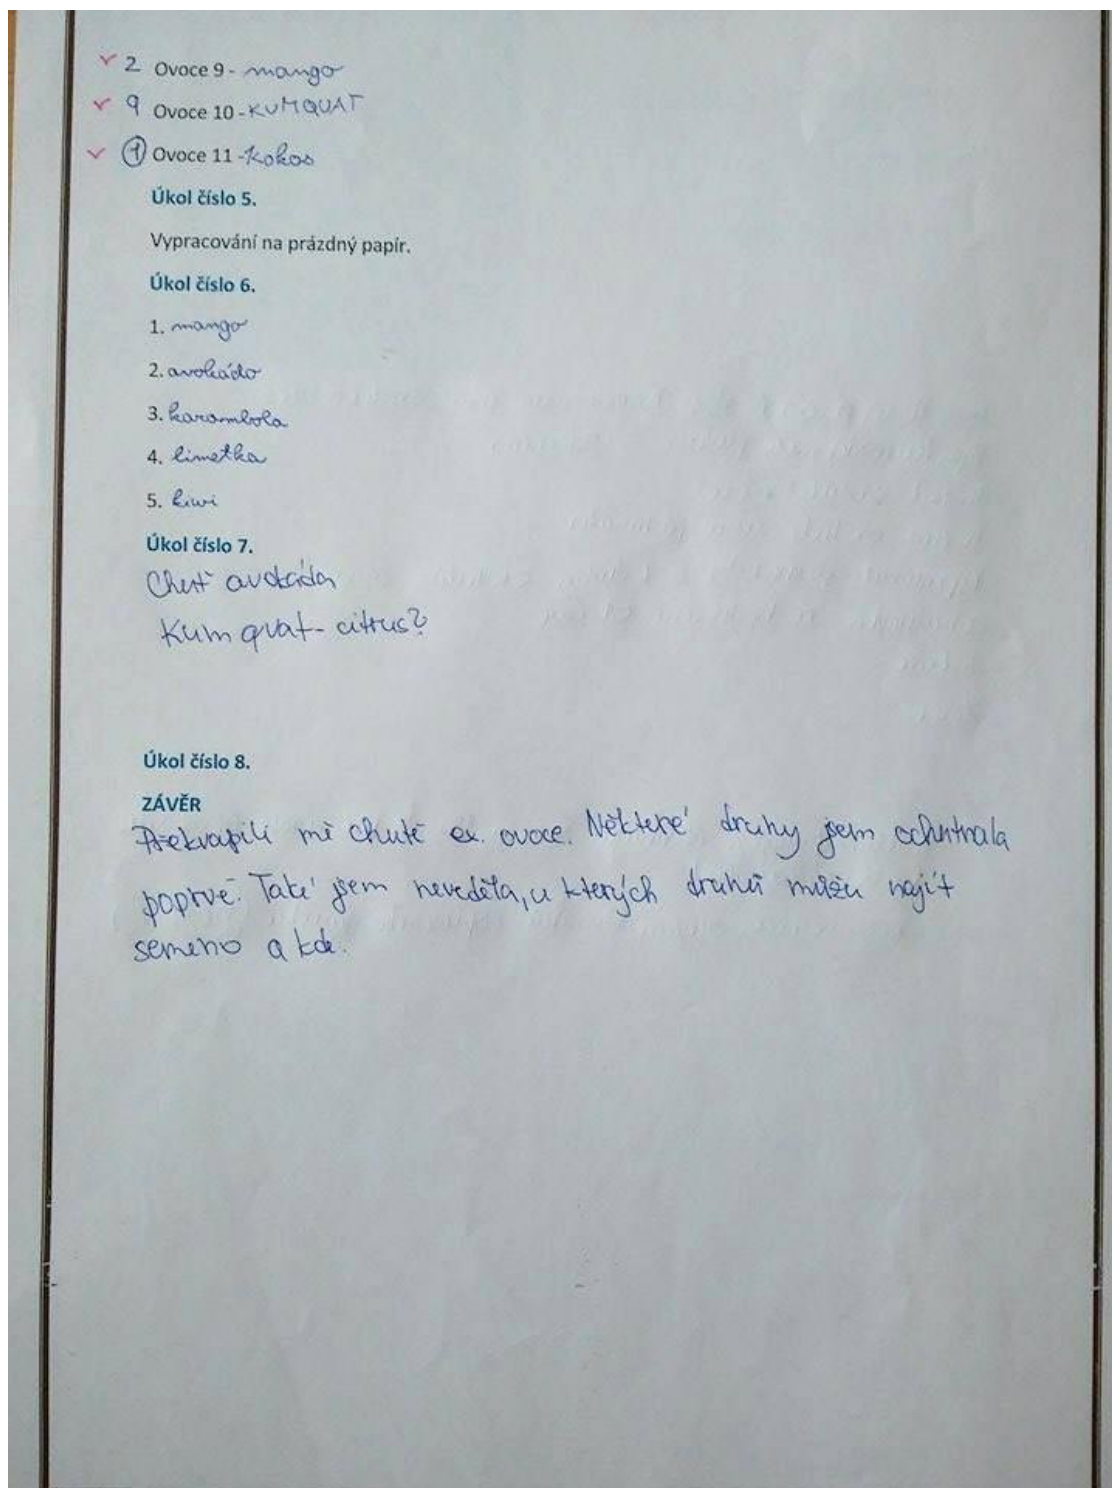 2 Ovoce 9 - mango
9 Ovoce 10 - KUMQUAT
1 Ovoce 11 - kokos
Úkol číslo 5.
Vypracování na prázdný papír.
Úkol číslo 6.
1. mango
2. avokádo
3. karambola
4. limetka
5. kiwi
Úkol číslo 7.
Chuť avokáda
Kumquat - citrus?
Úkol číslo 8.
ZÁVĚR
Překvapili mě chutě ex. ovoce. Některé druhy jsem ochutnala
poprvé. Také jsem nevěděla, u kterých druhů můžu najít
semeno a kde.